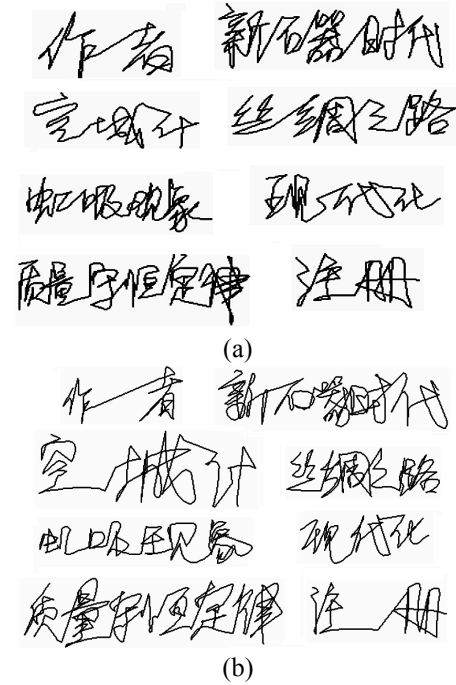 作者 新石器时代
空城计 丝绸之路
虹吸现象 现代化
质量守恒定律 注册
(a)
作者 新石器时代
空城计 丝绸之路
虹吸现象 现代化
质量守恒定律 注册
(b)